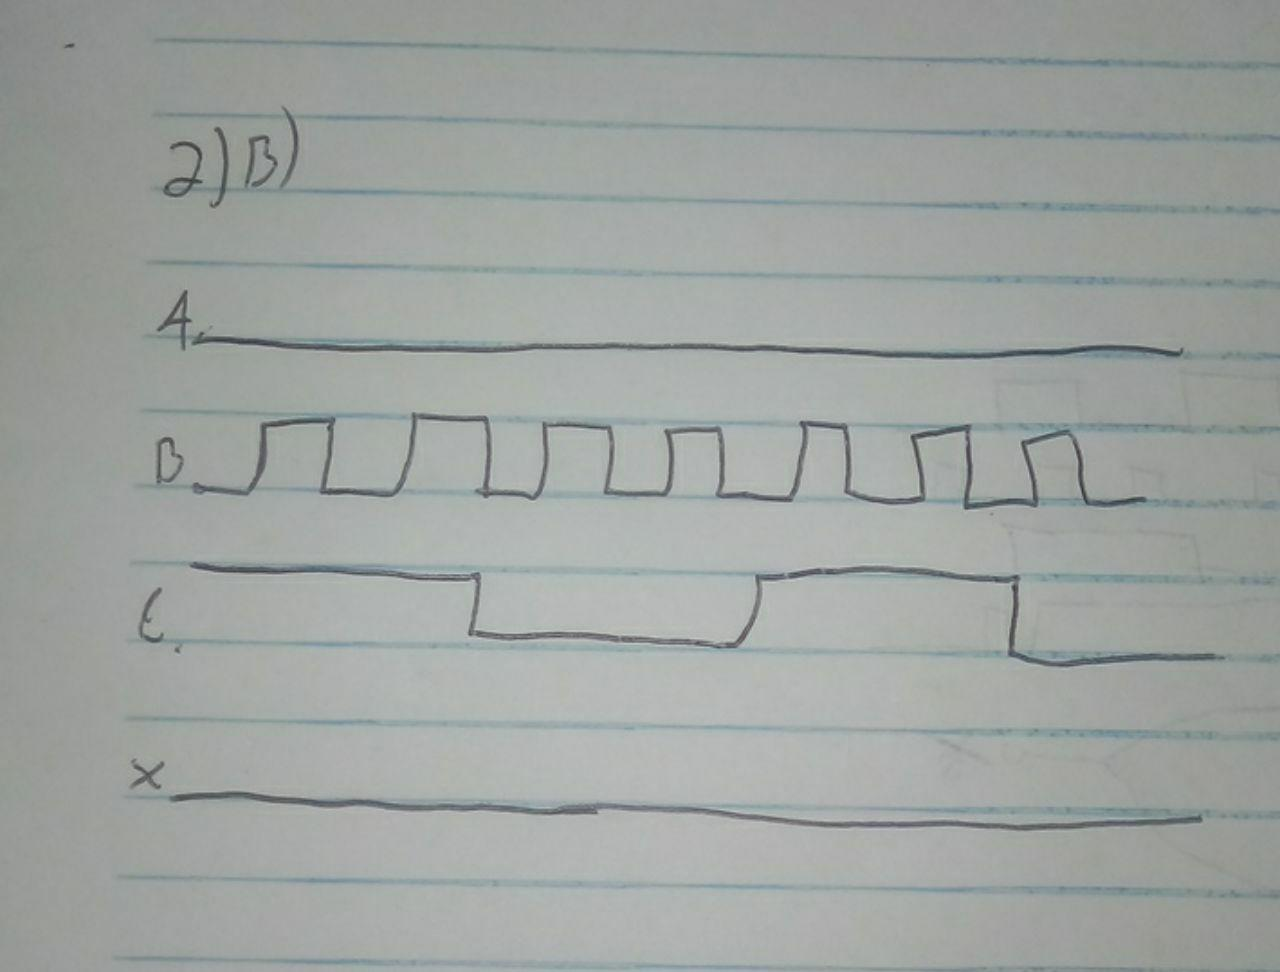 2)B)
A.
B.
C.
X